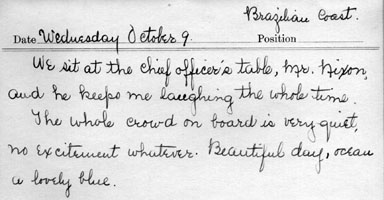 Brazilian Coast.
Date Wednesday October 9. Position
We sit at the chief officer's table, Mr. Nixon,
and he keeps me laughing the whole time.
The whole crowd on board is very quiet,
no excitement whatever. Beautiful day, ocean
a lovely blue.